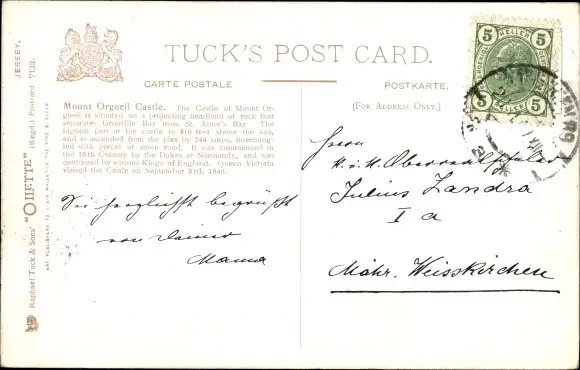 TUCK'S POST CARD.
CARTE POSTALE
POSTKARTE.
[FOR ADDRESS ONLY.]
JERSEY.
Raphael Tuck & Sons' "OILETTE" [Regd.] Postcard 7133.
ART PUBLISHERS TO THEIR MAJESTIES THE KING & QUEEN
Mount Orgueil Castle. The Castle of Mount Or-
gueil is situated on a projecting headland of rock that
separates Grouville Bay from St. Anne's Bay The
highest part of the castle is 310 feet above the sea,
and is ascended from the pier by 244 steps, intermin-
gled with pieces of steep road. It was commenced in
the 10th Century by the Dukes of Normandy, and was
continued by various Kings of England. Queen Victoria
visited the Castle on September 3rd, 1846.
Sei herzlichst begrüßt
von Deiner
Mama
5 HELLER 5
5 HELLER 5
Herrn
K. u. K.
Julius Zandra
I a
Mähr. Weisskirchen